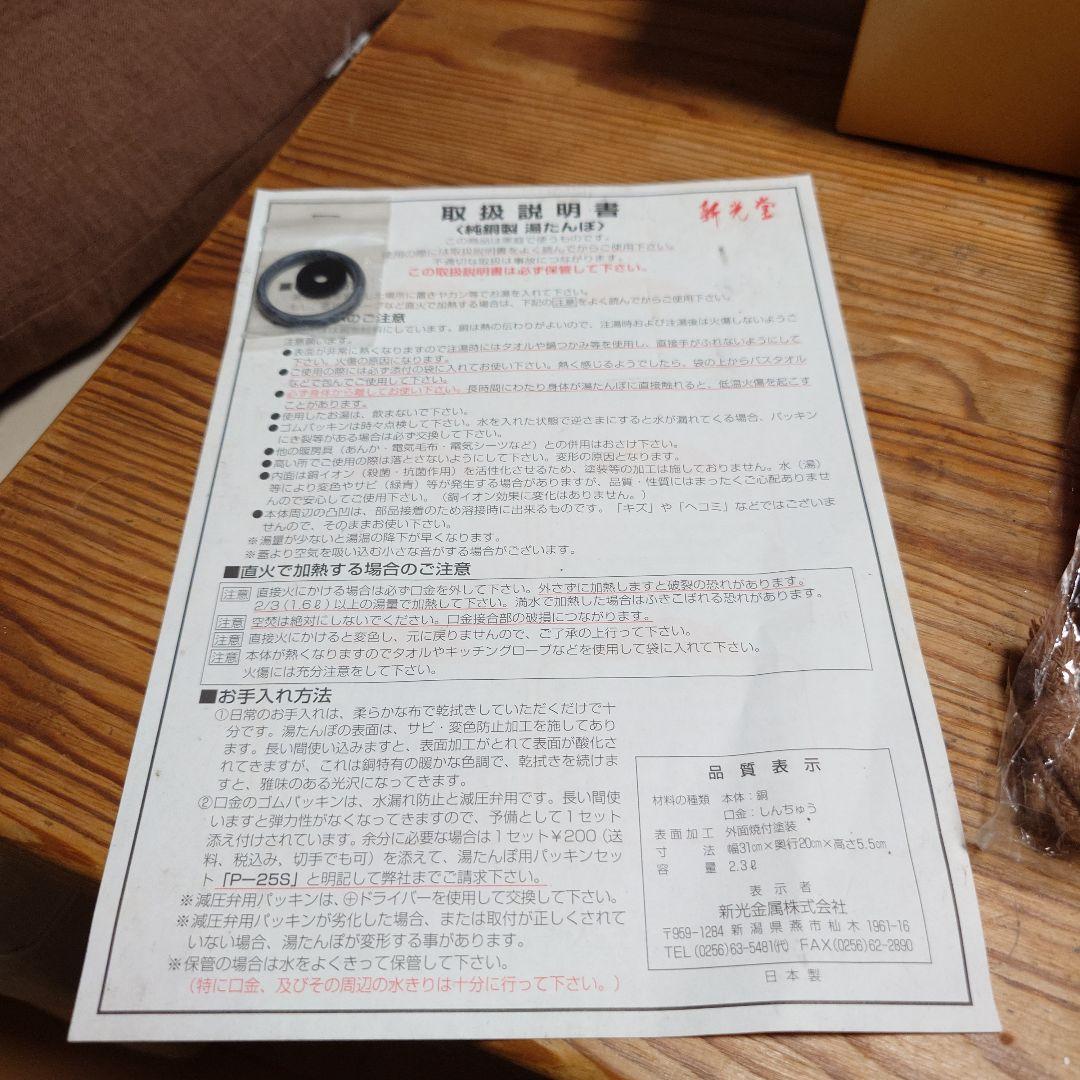 取扱説明書
新光堂
〈純銅製 湯たんぽ〉
この商品は家庭で使うものです。
使用の際には取扱説明書をよく読んでからご使用下さい。
不適切な取扱は事故につながります。
この取扱説明書は必ず保管して下さい。
場所に置きヤカン等でお湯を入れて下さい。
など直火で加熱する場合は、下記の注意をよく読んでからご使用下さい。
のご注意
にしています。銅は熱の伝わりがよいので、注湯時および注湯後は火傷しないようご
注意願います。
●表面が非常に熱くなりますので注湯時にはタオルや鍋つかみ等を使用し、直接手がふれないようにして
下さい。火傷の原因になります。
●ご使用の際には必ず添付の袋に入れてお使い下さい。熱く感じるようでしたら、袋の上からバスタオル
などで包んでご使用して下さい。
●必ず身体から離してお使い下さい。長時間にわたり身体が湯たんぽに直接触れると、低温火傷を起こす
ことがあります。
●使用したお湯は、飲まないで下さい。
●ゴムパッキンは時々点検して下さい。水を入れた状態で逆さまにすると水が漏れてくる場合、パッキン
にき裂等がある場合は必ず交換して下さい。
●他の暖房具（あんか・電気毛布・電気シーツなど）との併用はおさけ下さい。
●高い所でご使用の際は落とさないようにして下さい。変形の原因となります。
●内面は銅イオン（殺菌・抗菌作用）を活性化させるため、塗装等の加工は施しておりません。水（湯）
等により変色やサビ（緑青）等が発生する場合がありますが、品質・性質にはまったくご心配ありませ
んので安心してご使用下さい。（銅イオン効果に変化はありません。）
●本体周辺の凸凹は、部品接着のため溶接時に出来るものです。「キズ」や「ヘコミ」などではございま
せんので、そのままお使い下さい。
※湯量が少ないと湯温の降下が早くなります。
※蓋より空気を吸い込む小さな音がする場合がございます。
■直火で加熱する場合のご注意
注意 直接火にかける場合は必ず口金を外して下さい。外さずに加熱しますと破裂の恐れがあります。
2/3(1.6ℓ)以上の湯量で加熱して下さい。満水で加熱した場合はふきこぼれる恐れがあります。
注意 空焚は絶対にしないでください。口金接合部の破損につながります。
注意 直接火にかけると変色し、元に戻りませんので、ご了承の上行って下さい。
注意 本体が熱くなりますのでタオルやキッチングローブなどを使用して袋に入れて下さい。
火傷には充分注意をして下さい。
■お手入れ方法
①日常のお手入れは、柔らかな布で乾拭きしていただくだけで十
分です。湯たんぽの表面は、サビ・変色防止加工を施してあり
ます。長い間使い込みますと、表面加工がとれて表面が酸化さ
れてきますが、これは銅特有の暖かな色調で、乾拭きを続けま
すと、雅味のある光沢になってきます。
②口金のゴムパッキンは、水漏れ防止と減圧弁用です。長い間使
いますと弾力性がなくなってきますので、予備として1セット
添え付けされています。余分に必要な場合は1セット¥200（送
料、税込み，切手でも可）を添えて、湯たんぽ用パッキンセッ
ト「P－25S」と明記して弊社までご請求下さい。
※減圧弁用パッキンは、⊕ドライバーを使用して交換して下さい。
※減圧弁用パッキンが劣化した場合、または取付が正しくされて
いない場合、湯たんぽが変形する事があります。
※保管の場合は水をよくきって保管して下さい。
（特に口金、及びその周辺の水きりは十分に行って下さい。）
品質表示
材料の種類 本体：銅
口金：しんちゅう
表面加工 外面焼付塗装
寸法 幅31cm×奥行20cm×高さ5.5cm
容量 2.3ℓ
表示者
新光金属株式会社
〒959-1284 新潟県燕市杣木1961-16
TEL(0256)63-5481(代) FAX(0256)62-2890
日本製